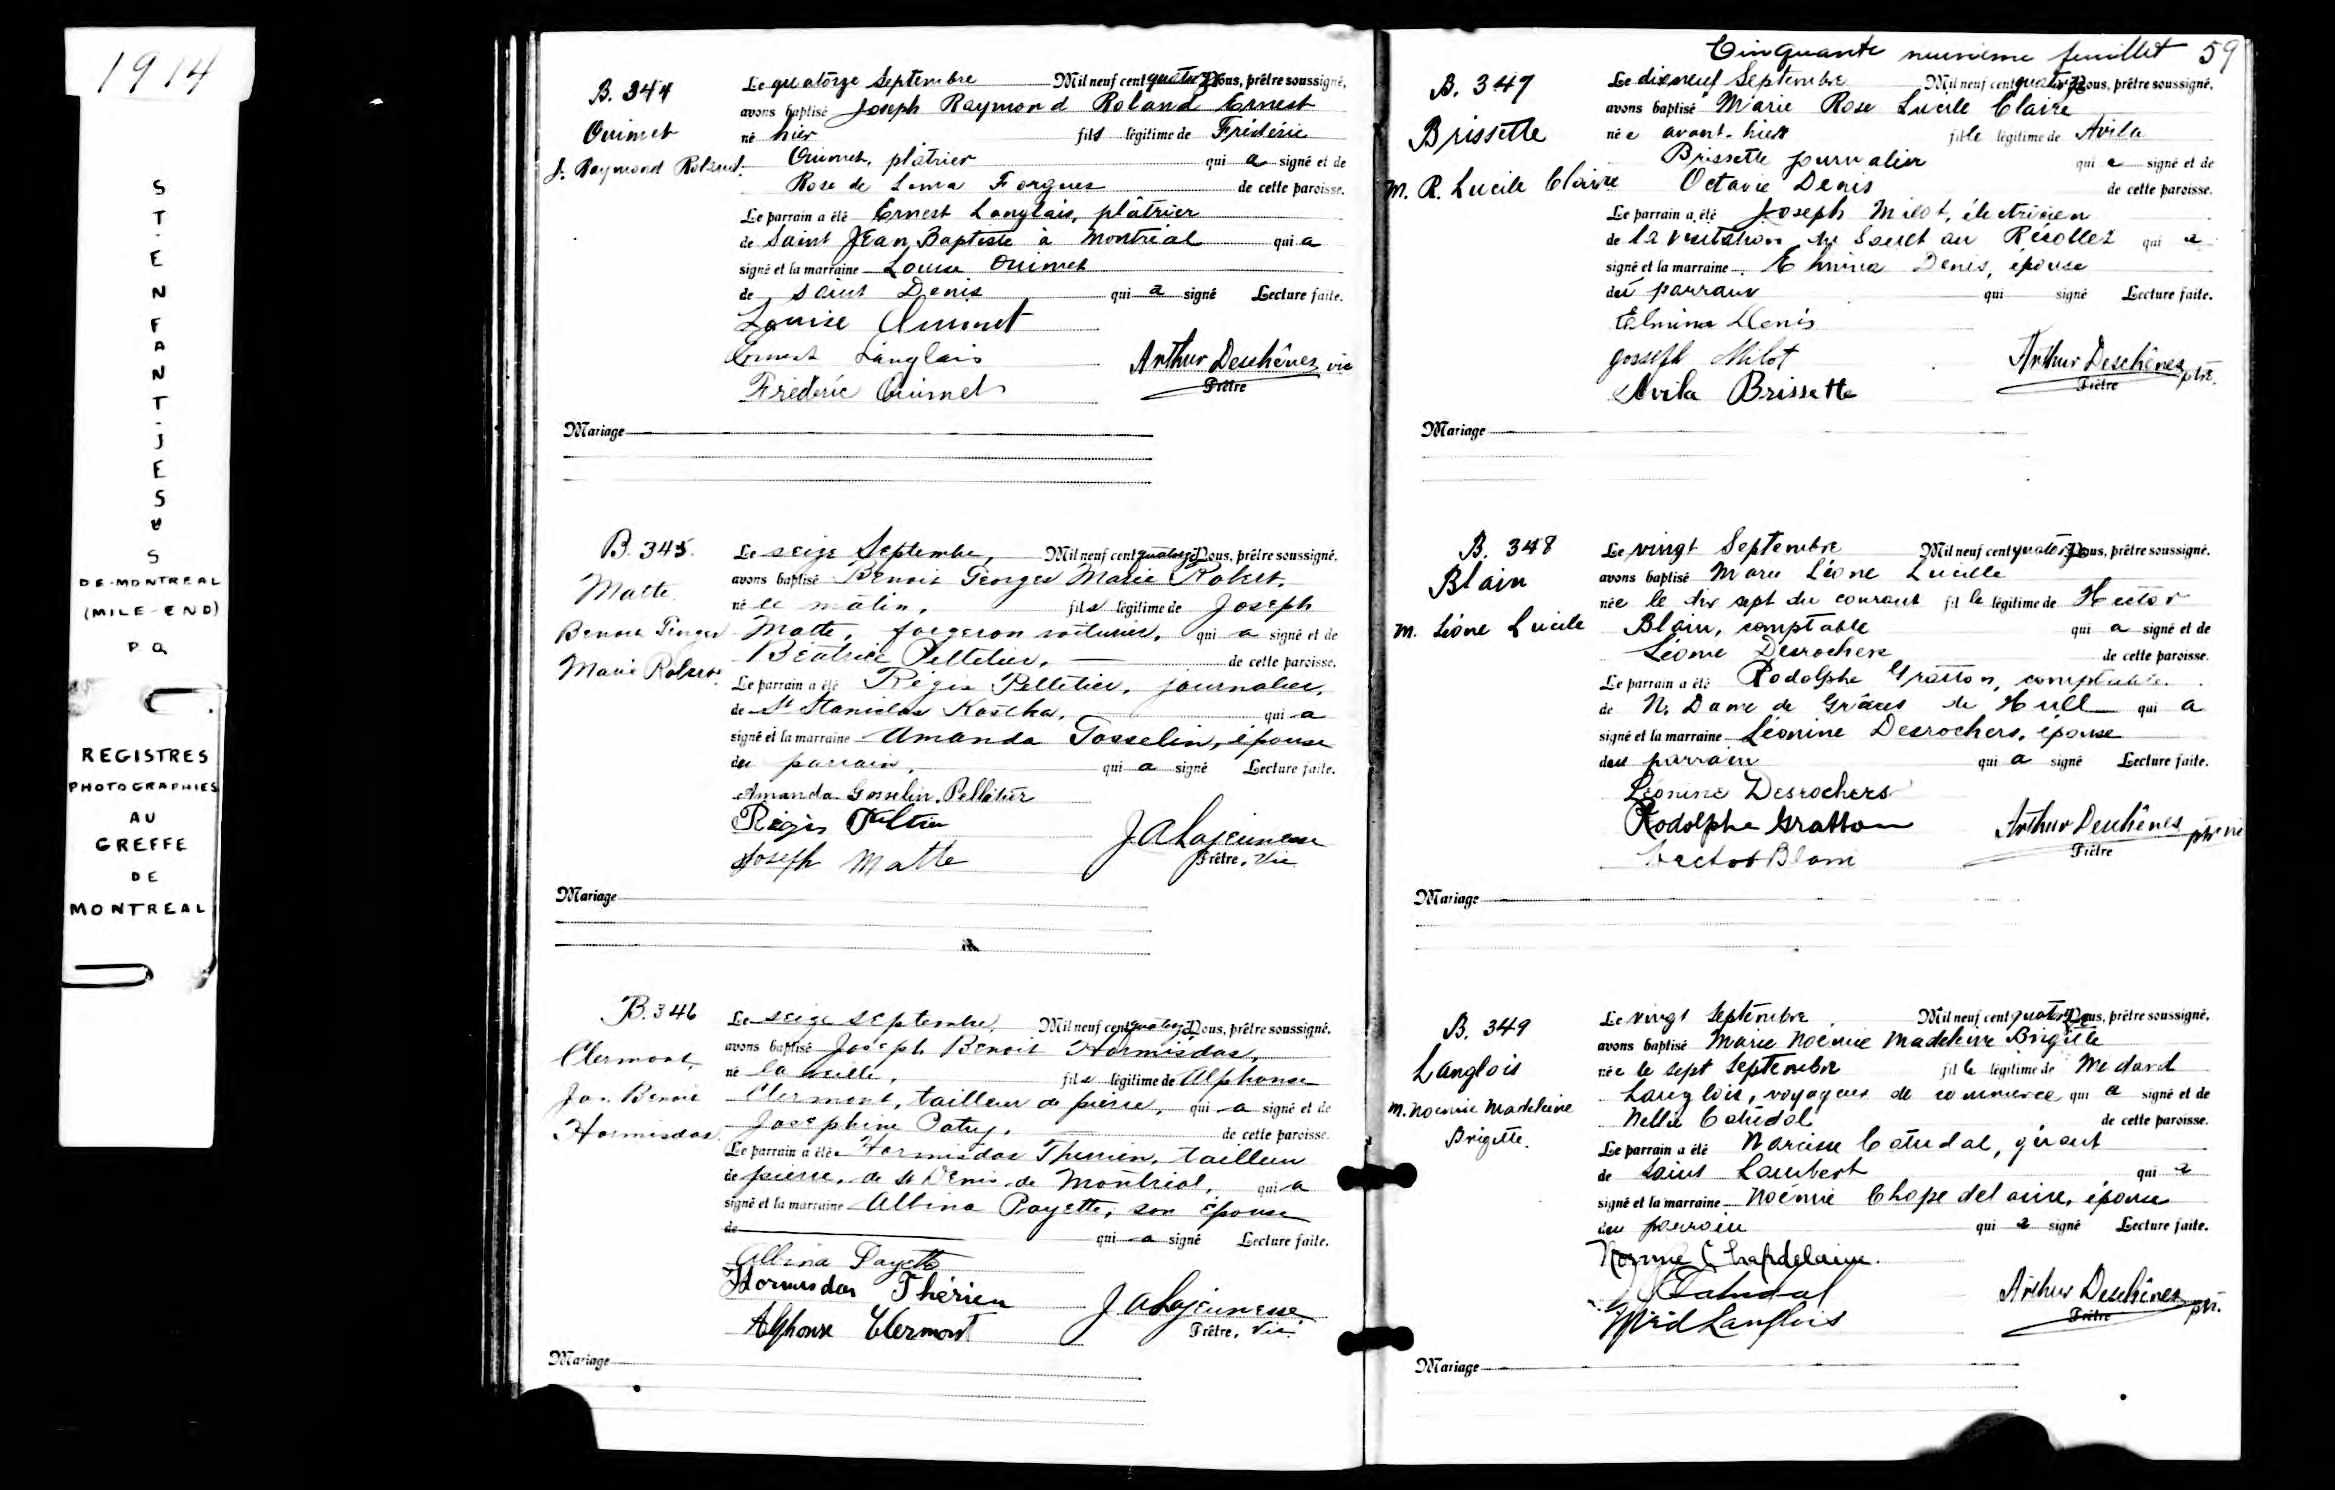 1914
STENFANT-JESUS
DE-MONTREAL
(MILE-END)
P Q
REGISTRES
PHOTOGRAPHIES
AU
GREFFE
DE
MONTREAL
B. 344
Ouimet
J. Raymond Roland.
Le quatorze Septembre Mil neuf cent quatorze Nous, prêtre soussigné,
avons baptisé Joseph Raymond Roland Ernest
né hier fils légitime de Frédéric
Ouimet, plâtrier qui a signé et de
Rose de Lima Forgues de cette paroisse.
Le parrain a été Ernest Langlais, plâtrier
de Saint Jean Baptiste à Montréal qui a
signé et la marraine Louise Ouimet
de Saint Denis qui a signé Lecture faite.
Louise Ouimet
Ernest Langlais
Arthur Deschênes vic
Prêtre
Frédéric Ouimet
Mariage
B. 345.
Matte
Benoit Georges
Marie Robert.
Le seize Septembre, Mil neuf cent quatorze Nous, prêtre soussigné,
avons baptisé Benoit Georges Marie Robert,
né ce matin, fils légitime de Joseph
Matte, forgeron voiturier, qui a signé et de
Béatrice Pelletier, de cette paroisse.
Le parrain a été Régis Pelletier, journalier,
de St Stanislas Kostka, qui a
signé et la marraine Amanda Gosselin, épouse
du parrain, qui a signé Lecture faite.
Amanda Gosselin Pelletier
Régis Peltier
J A Lajeunesse
Prêtre, Vic
Joseph Matte
Mariage
B. 346
Clermont,
Jos. Benoit
Hormisdas.
Le seize septembre, Mil neuf cent quatorze Nous, prêtre soussigné,
avons baptisé Joseph Benoit Hormisdas,
né la veille, fils légitime de Alphonse
Clermont, tailleur de pierre, qui a signé et de
Josephine Patry, de cette paroisse.
Le parrain a été Hormisdas Therrien, tailleur
de pierre, de St Denis de Montréal, qui a
signé et la marraine Albina Payette, son épouse
de qui a signé Lecture faite.
Albina Payette
Hormisdas Thérien
J A Lajeunesse
Prêtre, Vic
Alphonse Clermont
Mariage
Cinquante neuvième feuillet 59
B. 347
Brissette
M. R. Lucile Claire
Le dixneuf Septembre Mil neuf cent quatorze Nous, prêtre soussigné,
avons baptisé Marie Rose Lucile Claire
née avant-hier fille légitime de Avila
Brissette journalier qui a signé et de
Octavie Denis de cette paroisse.
Le parrain a été Joseph Milot, électricien
de la Visitation du Sault au Récollet qui a
signé et la marraine Elmina Denis, épouse
du parrain qui signé Lecture faite.
Elmina Denis
Joseph Milot
Arthur Deschênes ptre.
Prêtre
Avila Brissette
Mariage
B. 348
Blain
M. Léone Lucile
Le vingt Septembre Mil neuf cent quatorze Nous, prêtre soussigné,
avons baptisé Marie Léone Lucille
née le dix sept du courant fille légitime de Hector
Blain, comptable qui a signé et de
Léonie Desrochers de cette paroisse.
Le parrain a été Rodolphe Gratton, comptable
de N. Dame de Grâces de Hull qui a
signé et la marraine Léonine Desrochers, épouse
du parrain qui a signé Lecture faite.
Léonine Desrochers
Rodolphe Gratton
Arthur Deschênes
Prêtre
Hector Blain
Mariage
B. 349
Langlois
M. Noémie Madeleine
Brigitte.
Le vingt Septembre Mil neuf cent quatorze Nous, prêtre soussigné,
avons baptisé Marie Noémie Madeleine Brigitte
née le sept Septembre fille légitime de Médard
Langlois, voyageur de commerce qui a signé et de
Nellie Catudal de cette paroisse.
Le parrain a été Narcisse Catudal, gérant
de Saint Lambert qui a
signé et la marraine Noémie Chapedelaine, épouse
du parrain qui a signé Lecture faite.
Noémie Chapdelaine.
Catudal
Arthur Deschênes ptr.
Prêtre
Méd Langlois
Mariage